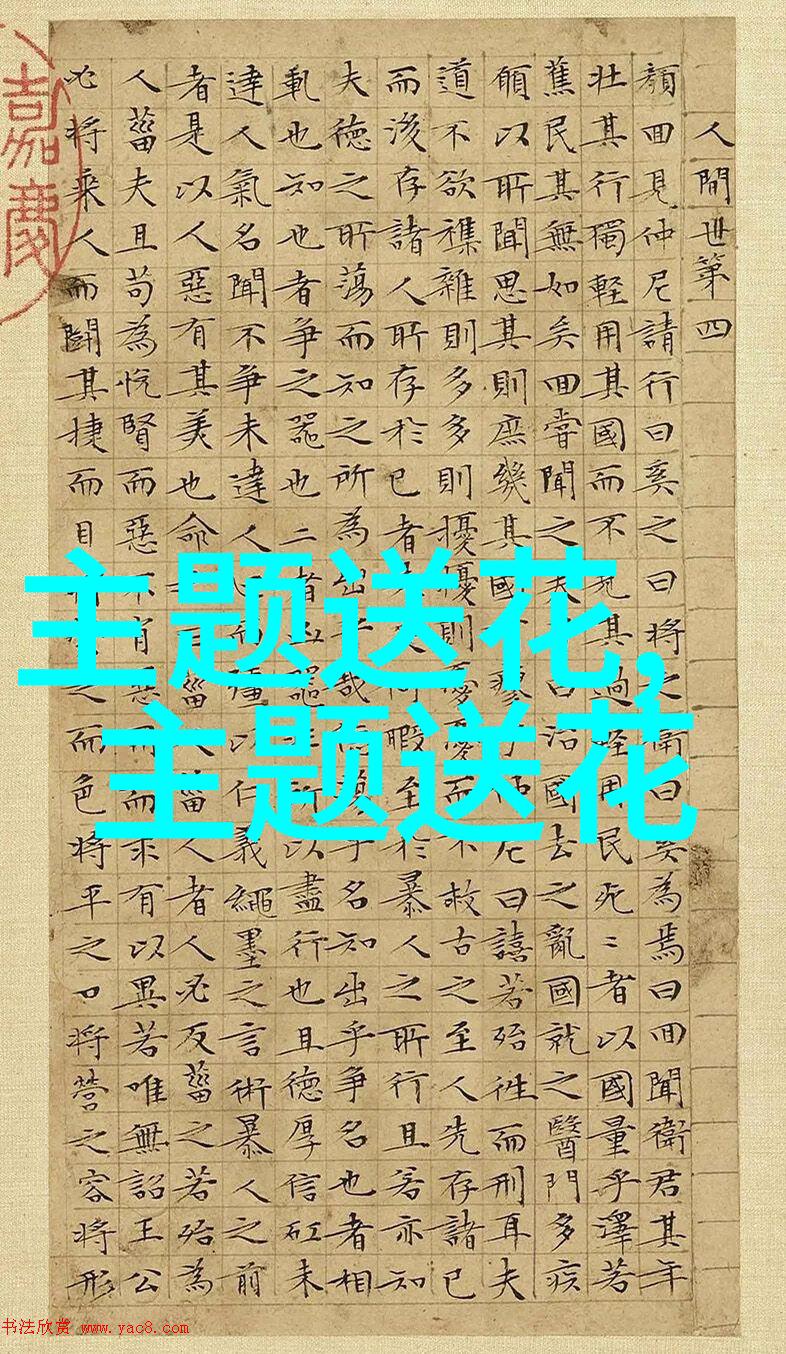 人間世第四
顏回見仲尼請行曰奚之曰將之衛曰奚為焉曰回聞衛君其年
壯其行獨輕用其國而不見其過輕用民死〻者以國量乎澤若
蕉民其無如矣回嘗聞之夫曰治國去之亂國就之醫門多疾
願以所聞思其則庶幾其國瘳乎仲尼曰譆若殆往而刑耳夫
道不欲襍雜則多多則擾擾則憂憂而不救古之至人先存諸己
而後存諸人所存於己者未何暇至於暴人之所行且若亦知
夫德之所蕩而知之所為出乎哉德蕩乎名知出乎爭名也者相
軋也知也者爭之器也二者凶器非所以盡行也且德厚信矼未
達人氣名聞不爭未達人而彊以仁義繩墨之言術暴人之前
者是以人惡有其美也命之菑人菑人者人必反菑之若殆為
人菑夫且苟為悅賢而惡不肖惡用而求有以異若唯無詔王公
必將乘人而鬭其捷而目將之而色將平之口將營之容將形
嘉慶
主题送花,
主题送花
书法欣赏 www.yac8.com